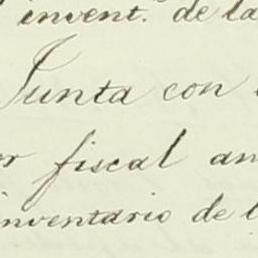 invent.º de la
Junta con
or fiscal an
inventario de l